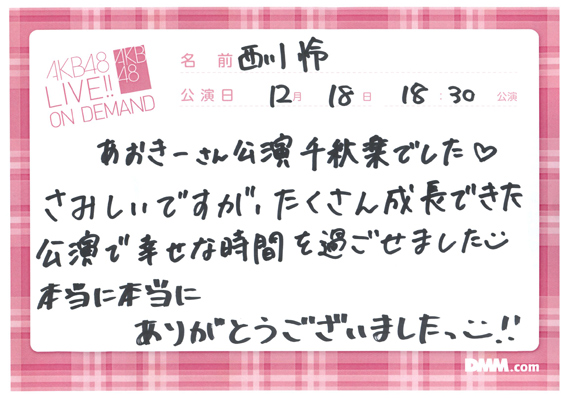 AKB48
LIVE!!
ON DEMAND
AKB
48
名前 西川怜
公演日 12月 18日 18:30 公演
あおきーさん公演千秋楽でした♡
さみしいですが、たくさん成長できた
公演で幸せな時間を過ごせました
本当に本当に
ありがとうございましたっ!!
DMM.com